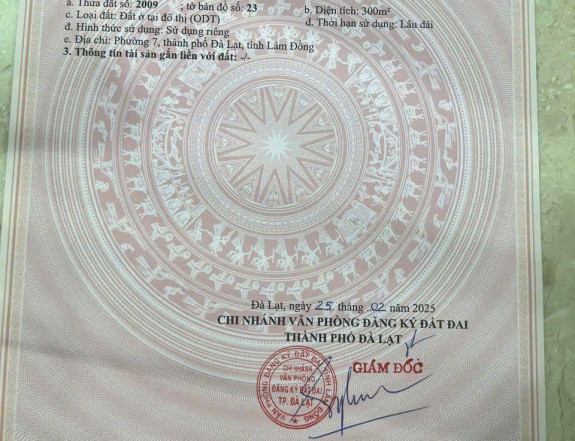 a. Thửa đất số: 2009 ; tờ bản đồ số: 23 b. Diện tích: 300m²
c. Loại đất: Đất ở tại đô thị (ODT) d. Thời hạn sử dụng: Lâu dài
đ. Hình thức sử dụng: Sử dụng riêng
e. Địa chỉ: Phường 7, thành phố Đà Lạt, tỉnh Lâm Đồng
3. Thông tin tài sản gắn liền với đất: -/-
Đà Lạt, ngày 25 tháng 02 năm 2025
CHI NHÁNH VĂN PHÒNG ĐĂNG KÝ ĐẤT ĐAI
THÀNH PHỐ ĐÀ LẠT
GIÁM ĐỐC
VĂN PHÒNG ĐĂNG KÝ ĐẤT ĐAI TỈNH LÂM ĐỒNG
CHI NHÁNH
VĂN PHÒNG
ĐĂNG KÝ ĐẤT ĐAI
TP. ĐÀ LẠT